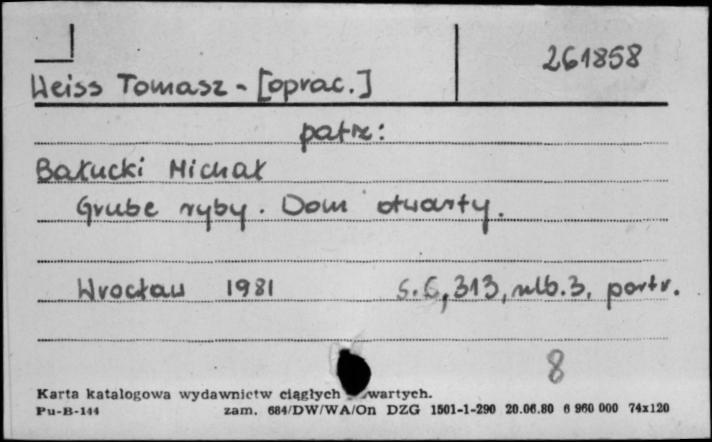 261858
Weiss Tomasz - [oprac.]
patrz:
Bałucki Michał
Grube ryby. Dom otwarty.
Wrocław 1981 s. 6, 313, nlb. 3, portr.
8
Karta katalogowa wydawnictw ciągłych wartych.
Pu-B-144 zam. 684/DW/WA/On DZG 1501-1-290 20.06.80 6 960 000 74x120